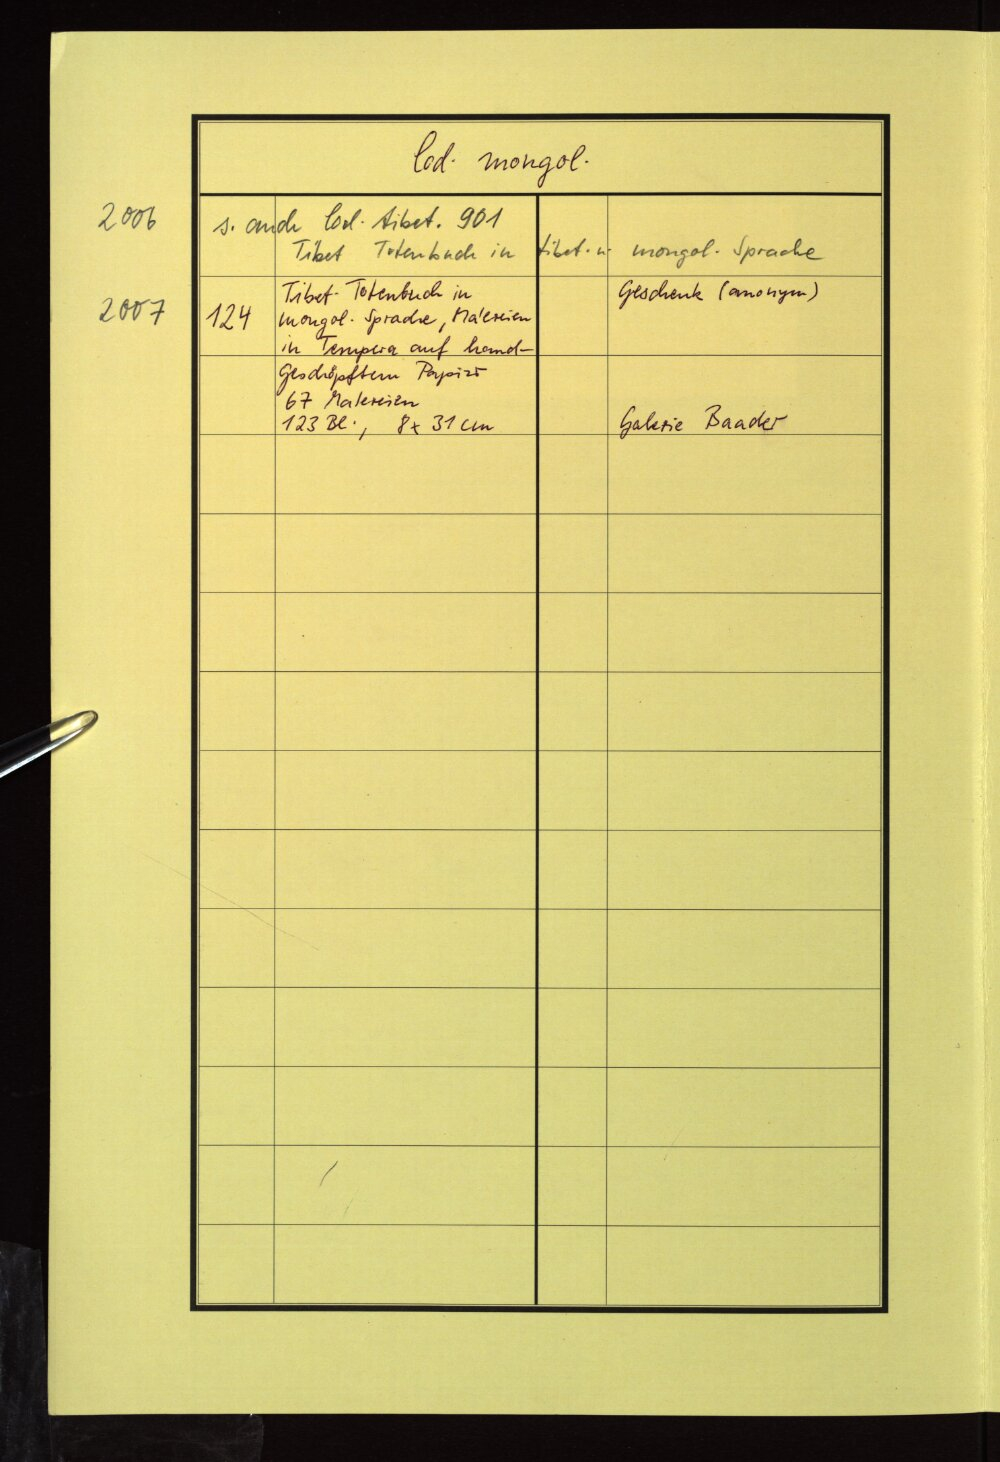 Cod. mongol.
2006 s. auch Cod. tibet. 901
Tibet Totenbuch in tibet. u. mongol. Sprache
Tibet. Totenbuch in Geschenk (anonym)
2007 124 mongol. Sprache, Malereien
in Tempera auf hand-
geschöpftem Papier
67 Malereien
123 Bl., 8x 31 cm Galerie Baader